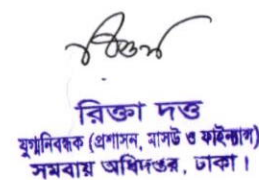 রিক্তা দত্ত
যুগ্মনিবন্ধক (প্রশাসন, মাসউ ও ফাইন্যান্স)
সমবায় অধিদপ্তর, ঢাকা।